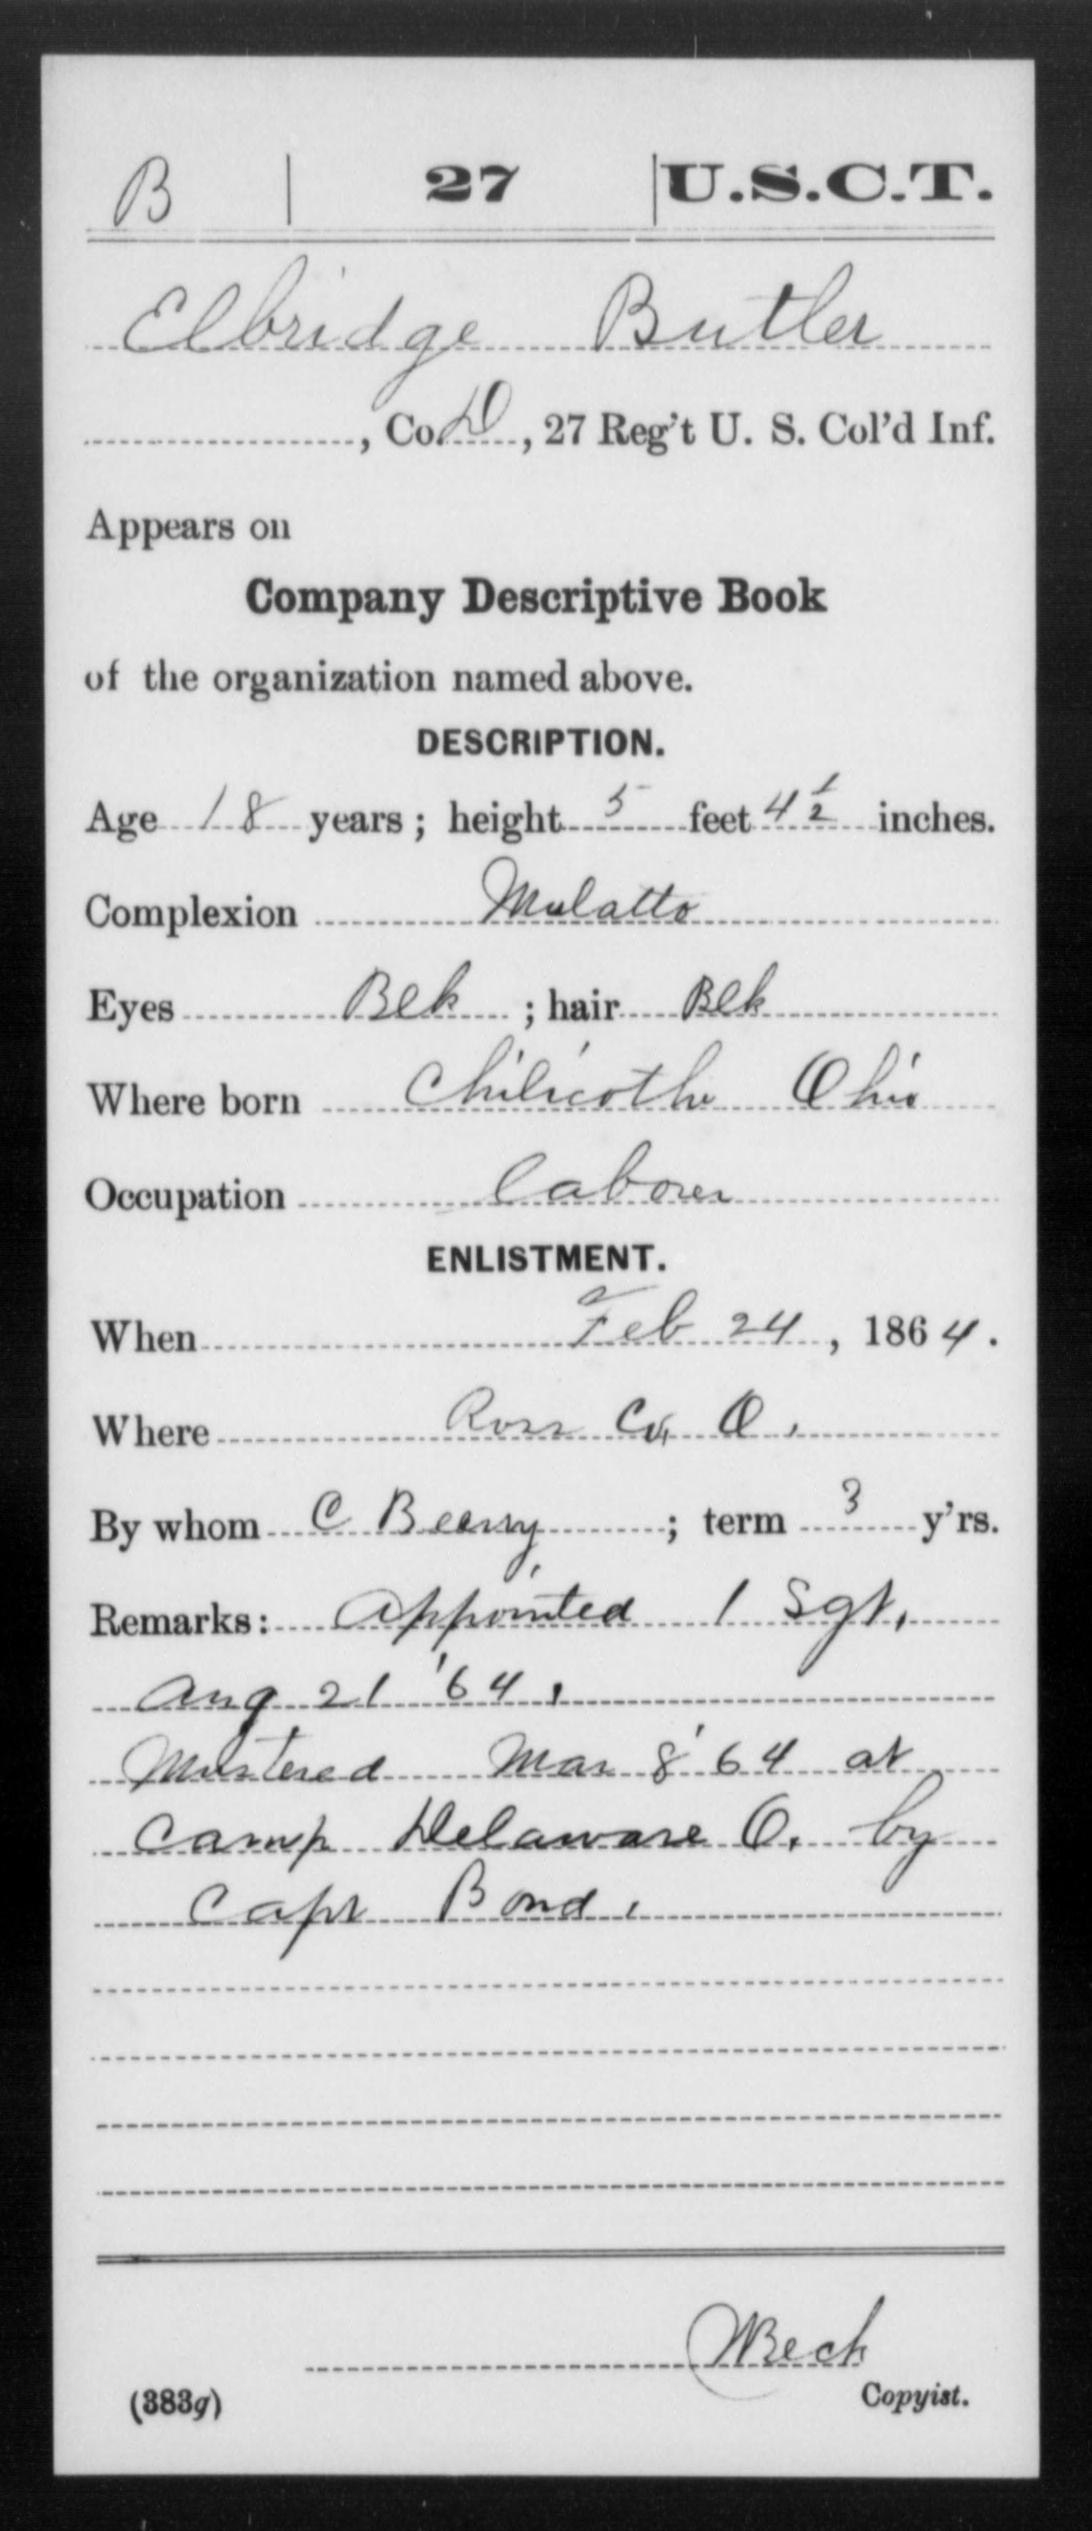 B | 27 | U.S.C.T.
Elbridge Butler
, Co. D, 27 Reg't U. S. Col'd Inf.
Appears on
Company Descriptive Book
of the organization named above.
DESCRIPTION.
Age 18 years; height 5 feet 4 1/2 inches.
Complexion Mulatto
Eyes Blk; hair Blk
Where born Chilicothe Ohio
Occupation Laborer
ENLISTMENT.
When Feb 24, 1864.
Where Ross Co, O.
By whom C Beerry; term 3 y'rs.
Remarks: Appointed 1 Sgt,
Aug 21 '64.
Mustered Mar 8 '64 at
Camp Delaware O. by
Capt Bond.
Beck
(383g) Copyist.